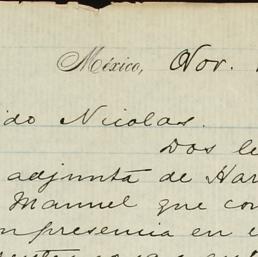 México, Nov.
ido Nicolas.
Dos le
adjunta de Har
Manuel que con
presencia en e